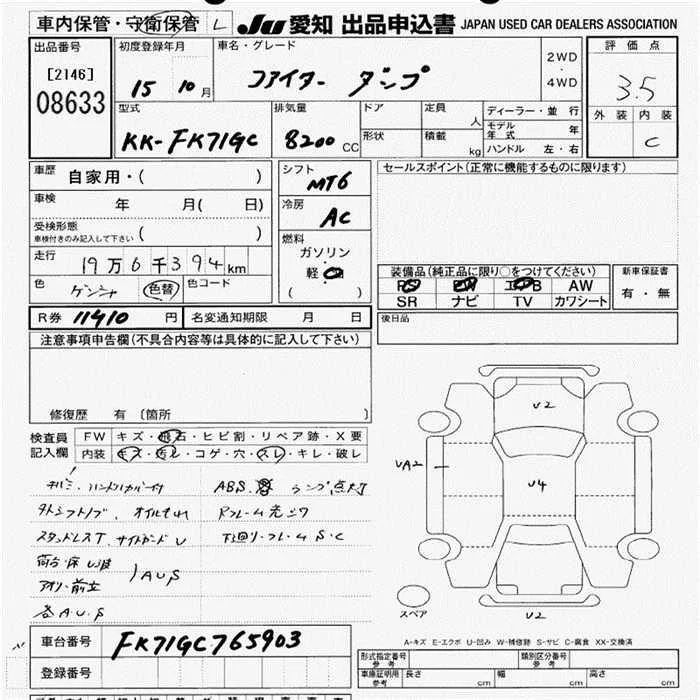 車内保管・守衛保管 L JU 愛知 出品申込書 JAPAN USED CAR DEALERS ASSOCIATION
出品番号 初度登録年月 車名・グレード 2WD・4WD 評価点
[2146] 08633 15 10月 ファイター ダンプ 3.5
型式 排気量 ドア 定員 人 ディーラー・並行 外装 内装
KK-FK71GC 8200 CC 形状 積載 kg モデル年式 年 C
ハンドル 左・右
車歴 自家用・( ) シフト MT6 セールスポイント(正常に機能するものに限ります)
車検 年 月( 日) 冷房 AC
受検形態 車検付きのみ記入して下さい ( )
燃料 ガソリン・軽・( )
走行 19万6千394km
色 ゲンシャ 色替 色コード
装備品(純正品に限り○をつけてください) 新車保証書
AW 有・無
SR ナビ TV カワシート
R券 11410 円 名変通知期限 月 日 後日品
注意事項申告欄(不具合内容等は具体的に記入して下さい)
修復歴 有〔箇所 〕
検査員記入欄 FW キズ・飛石・ヒビ割・リペア跡・X要
内装 キズ・汚レ・コゲ・穴・スレ・キレ・破レ
ABS ランプ点灯
オイルもれ
スタッドレスT、サイドガードU 下回り・フレームS・C
荷台・床
アオリ・前立 )AUS
各A.U.S
U2
UA2
U4
U2
スペア
A-キズ E-エクボ U-凹み W-補修跡 S-サビ C-腐食 XX-交換済
車台番号 FK71GC765903
登録番号
形式指定番号 参考 類別区分番号 参考
車庫証明用 参考 長さ cm 幅 cm 高さ cm